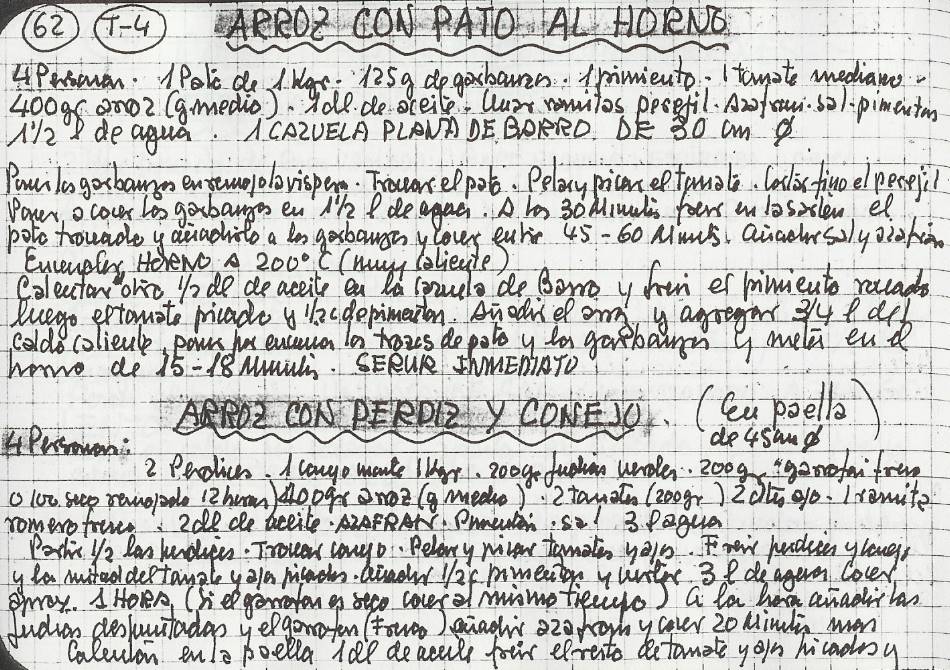 62 T-4 ARROZ CON PATO AL HORNO
4 Personas. 1 Pato de 1 Kgr. 125g de garbanzos. 1 pimiento. 1 tomate mediano.
400gr arroz (g. medio). 1 dl. de aceite. Unas ramitas perejil. Azafran. sal. pimenton
1½ l de agua. 1 CAZUELA PLANA DE BARRO DE 30 cm Ø
Poner los garbanzos en remojo la vispera. Trocear el pato. Pelar y picar el tomate. Cortar fino el perejil
Poner a cocer los garbanzos en 1½ l de agua. A los 30 Minutos freir en la sarten el
pato troceado y añadirlo a los garbanzos y cocer entre 45-60 Minuts. añadir sal y azafran
Encender HORNO A 200° C (muy caliente)
Calentar otro ½ dl de aceite en la cazuela de Barro y freir el pimiento troceado
luego el tomate picado y ½ c de pimenton. Añadir el arroz y agregar 3/4 l del
caldo caliente, poner por encima los trozos de pato y los garbanzos y meter en el
horno de 15-18 Minutos. SERVIR INMEDIATO
ARROZ CON PERDIZ Y CONEJO. (en paella
de 45 cm Ø)
4 Personas:
2 Perdices. 1 conejo 1 Kgr. 200gr Judias verdes. 200g "garrofon fresco
o 100 seco remojado 12 horas) 400gr arroz (g medio). 2 tomates (200gr) 2 dtes ajo. 1 ramita
romero fresco. 2 dl de aceite. AZAFRAN. Pimentón. sal 3 l agua
Partir ½ las perdices. Trocear conejo. Pelar y picar tomates y ajos. Freir perdices y conejo
y la mitad del tomate y ajos picados. añadir ½ c pimenton y verter 3 l de agua cocer
aprox. 1 HORA (Si el garrofon es seco cocer al mismo tiempo) A la hora añadir las
Judias despuntadas y el garrofon (Fresco) añadir azafran y cocer 20 Minutos mas
Calentar en la paella 1 dl de aceite freir el resto de tomate y ajos picados y